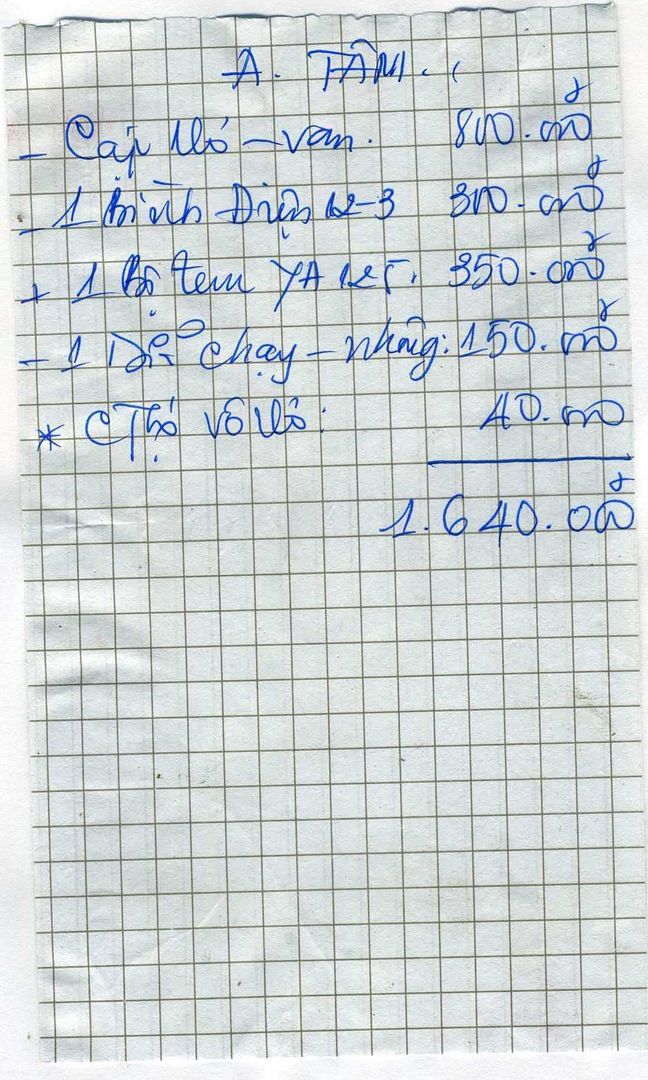 A. TÂM.
- Cặp Vỏ - van. 800.000đ
- 1 Bình Điện 12-3 300.000đ
+ 1 Bộ tem YA 125. 350.000đ
- 1 chạy - nhông: 150.000đ
* C Thợ vô Vỏ: 40.000
1.640.000đ